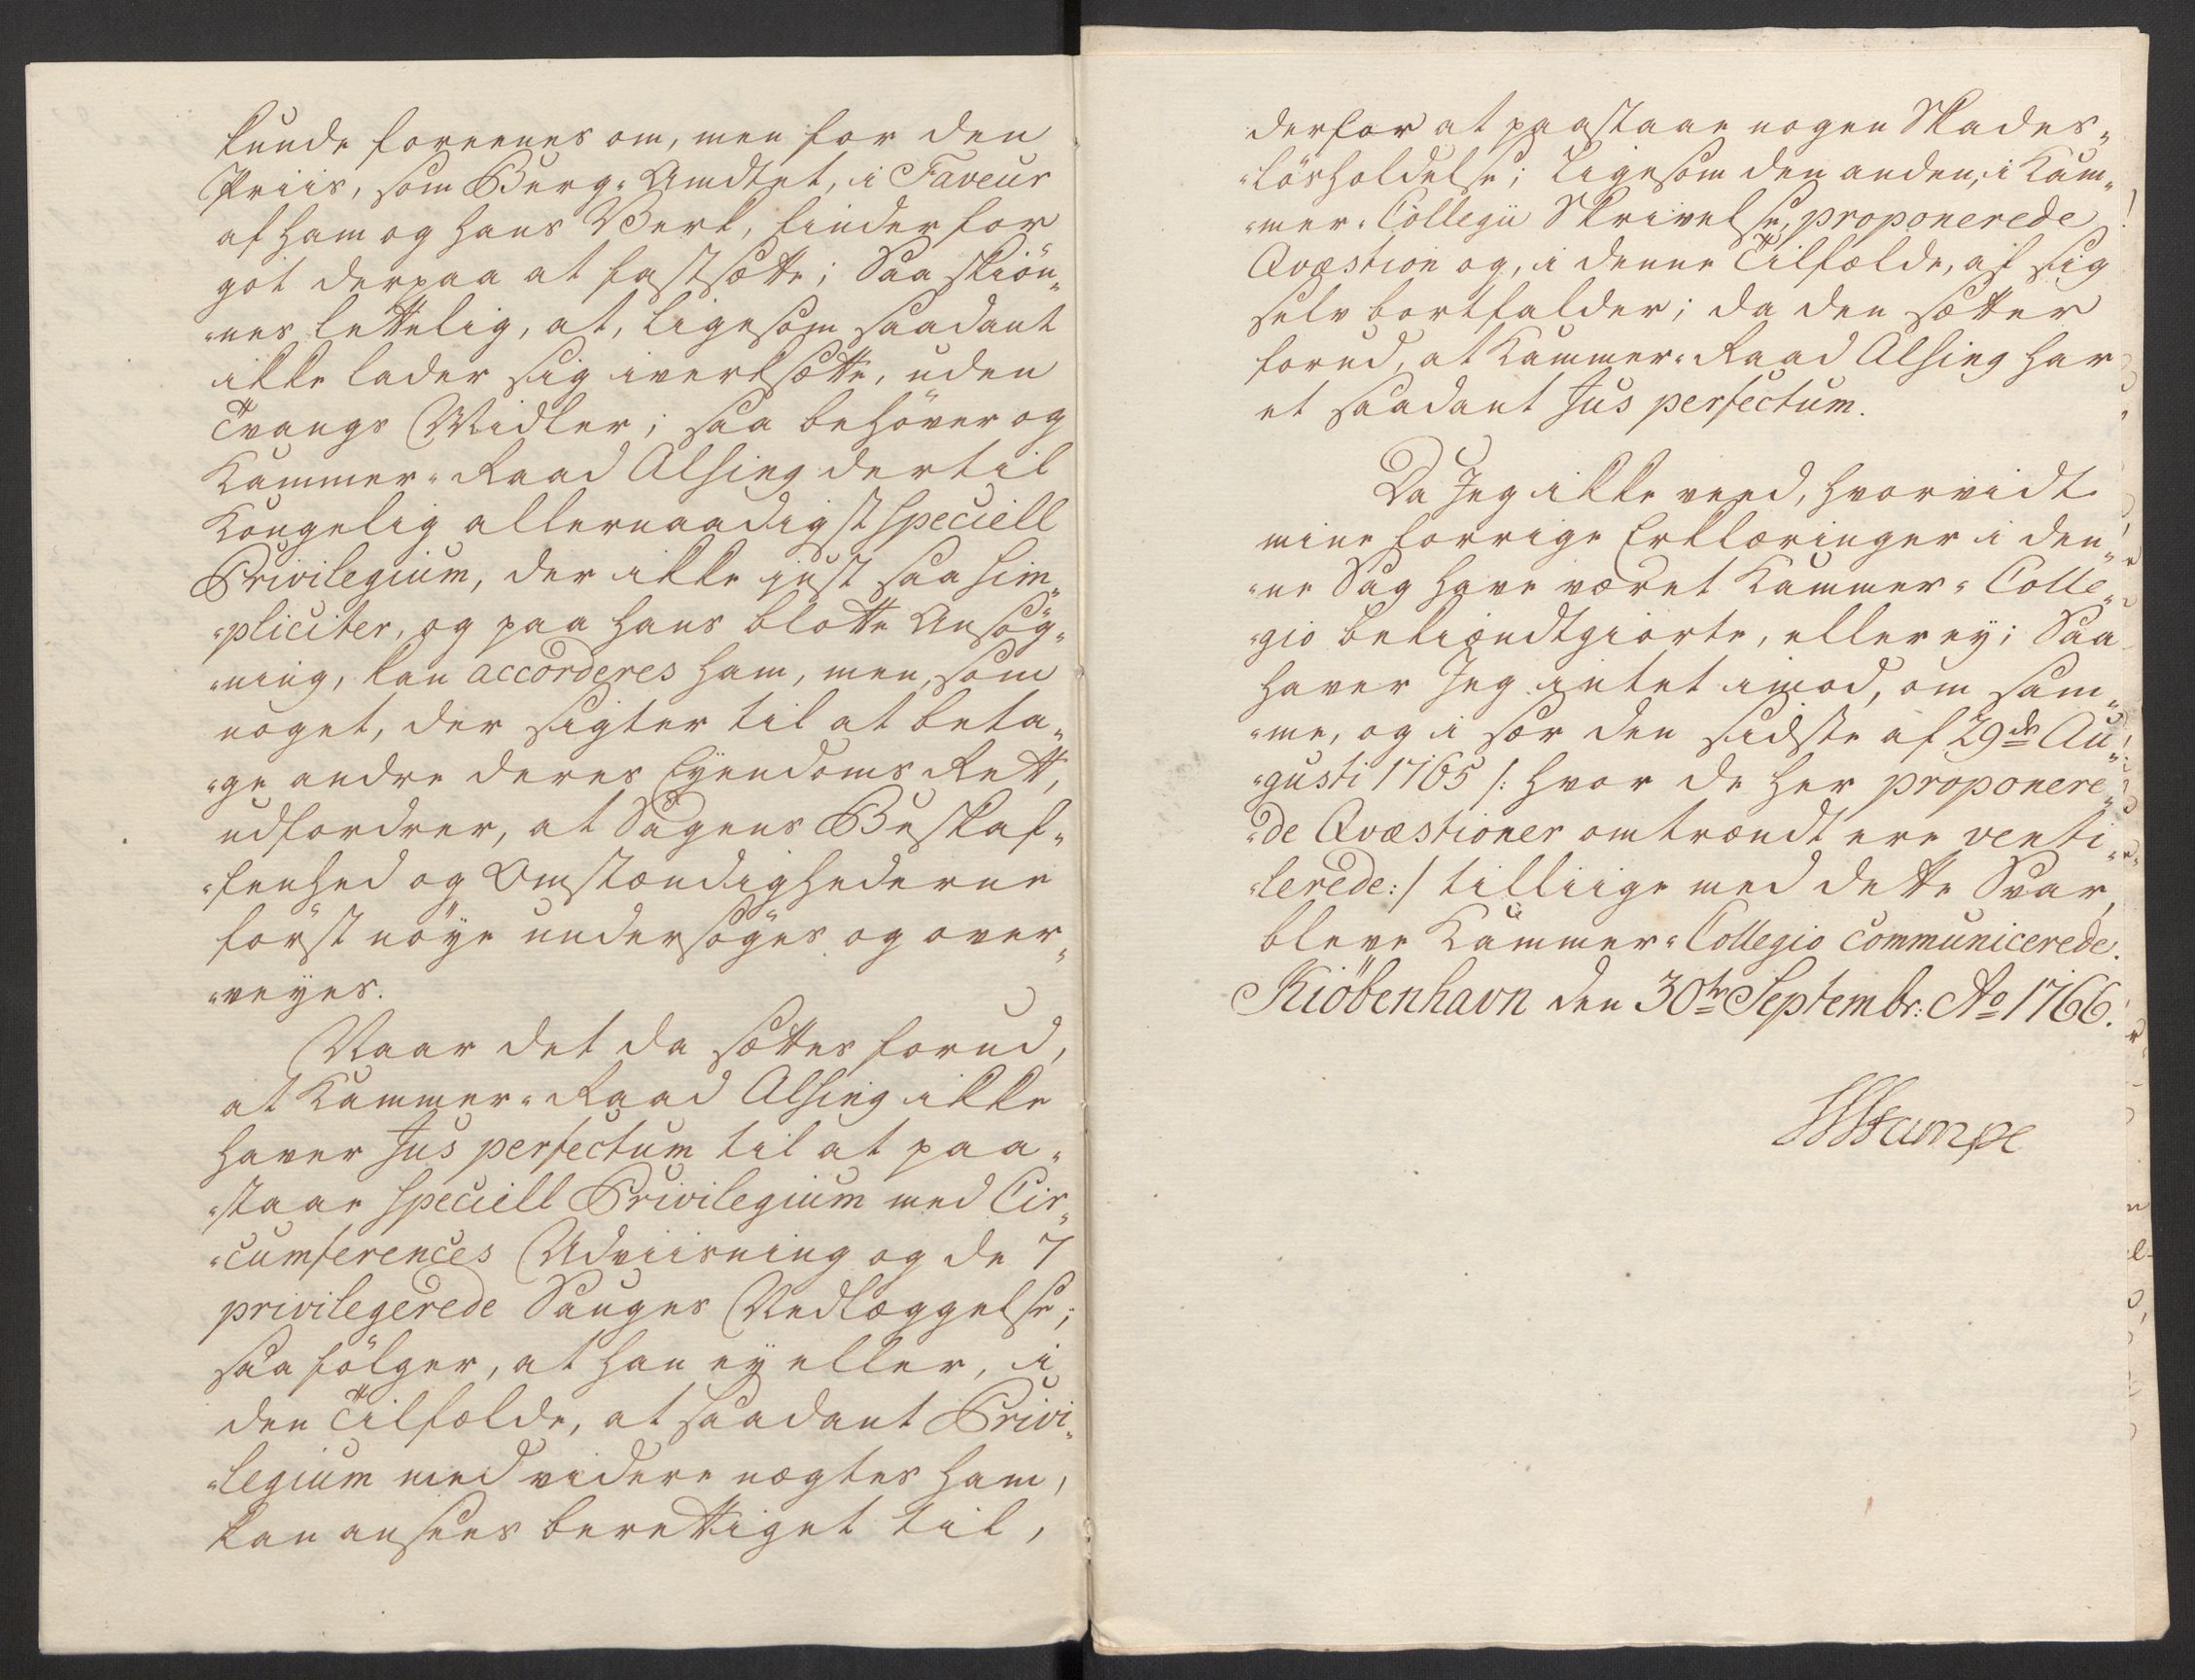 kunde foreenes om, men for den
Priis, som Berg-Amdtet, i Faveur
af ham og hans Verk, finder for
got derpaa at fastsætte; Saa skiön-
-nes lettelig, at, ligesom saadant
ikke lader sig iverksætte, uden
Tvangs Midler; saa behöver og
Kammer-Raad Alsing dertil
Kongelig allernaadigst speciell
Privilegium, der ikke just saa sim-
-pliciter, og paa hans blotte Ansög-
-ning, kan accorderes ham, men, som
noget, der sigter til at beta-
-ge andre deres Eyendoms Rett,
udfordrer, at Sagens Beskaf-
-fenhed og Omstændighederne
först nöye undersöges og over-
-veyes.
Naar det da sættes forud,
at Kammer-Raad Alsing ikke
haver Jus perfectum til at paa-
-staae speciell Privilegium med Cir-
-cumferences Udviisning og de 7
privilegerede Sauges Nedlæggelse;
saa fölger, at han ey eller, i
den Tilfælde, at saadant Privi-
-legium med videre nægtes ham,
kan ansees berettiget til,
derfor at paastaae nogen Skades-
-lösholdelse; Ligesom den anden, i Kam-
-mer-Collegii Skrivelse, proponerede
Qvæstion og, i denne Tilfælde, af sig
selv bortfalder; da den sætter
forud, at Kammer-Raad Alsing har
et saadant Jus perfectum.
Da Jeg ikke veed, hvorvidt
mine forrige Erklæringer i den-
-ne Sag have været Kammer-Colle-
-gio bekiændtgiorte, eller ey; Saa
haver Jeg intet imod, om sam-
-me, og i sær den sidste af 29de Au-
-gusti 1765 /: hvor de her proponere-
-de Qvæstioner omtrændt ere venti-
-lerede :/ tilliige med dette Svar,
bleve Kammer-Collegio communicerede.
Kiöbenhavn den 30te Septembr: Ao 1766.
HStampe